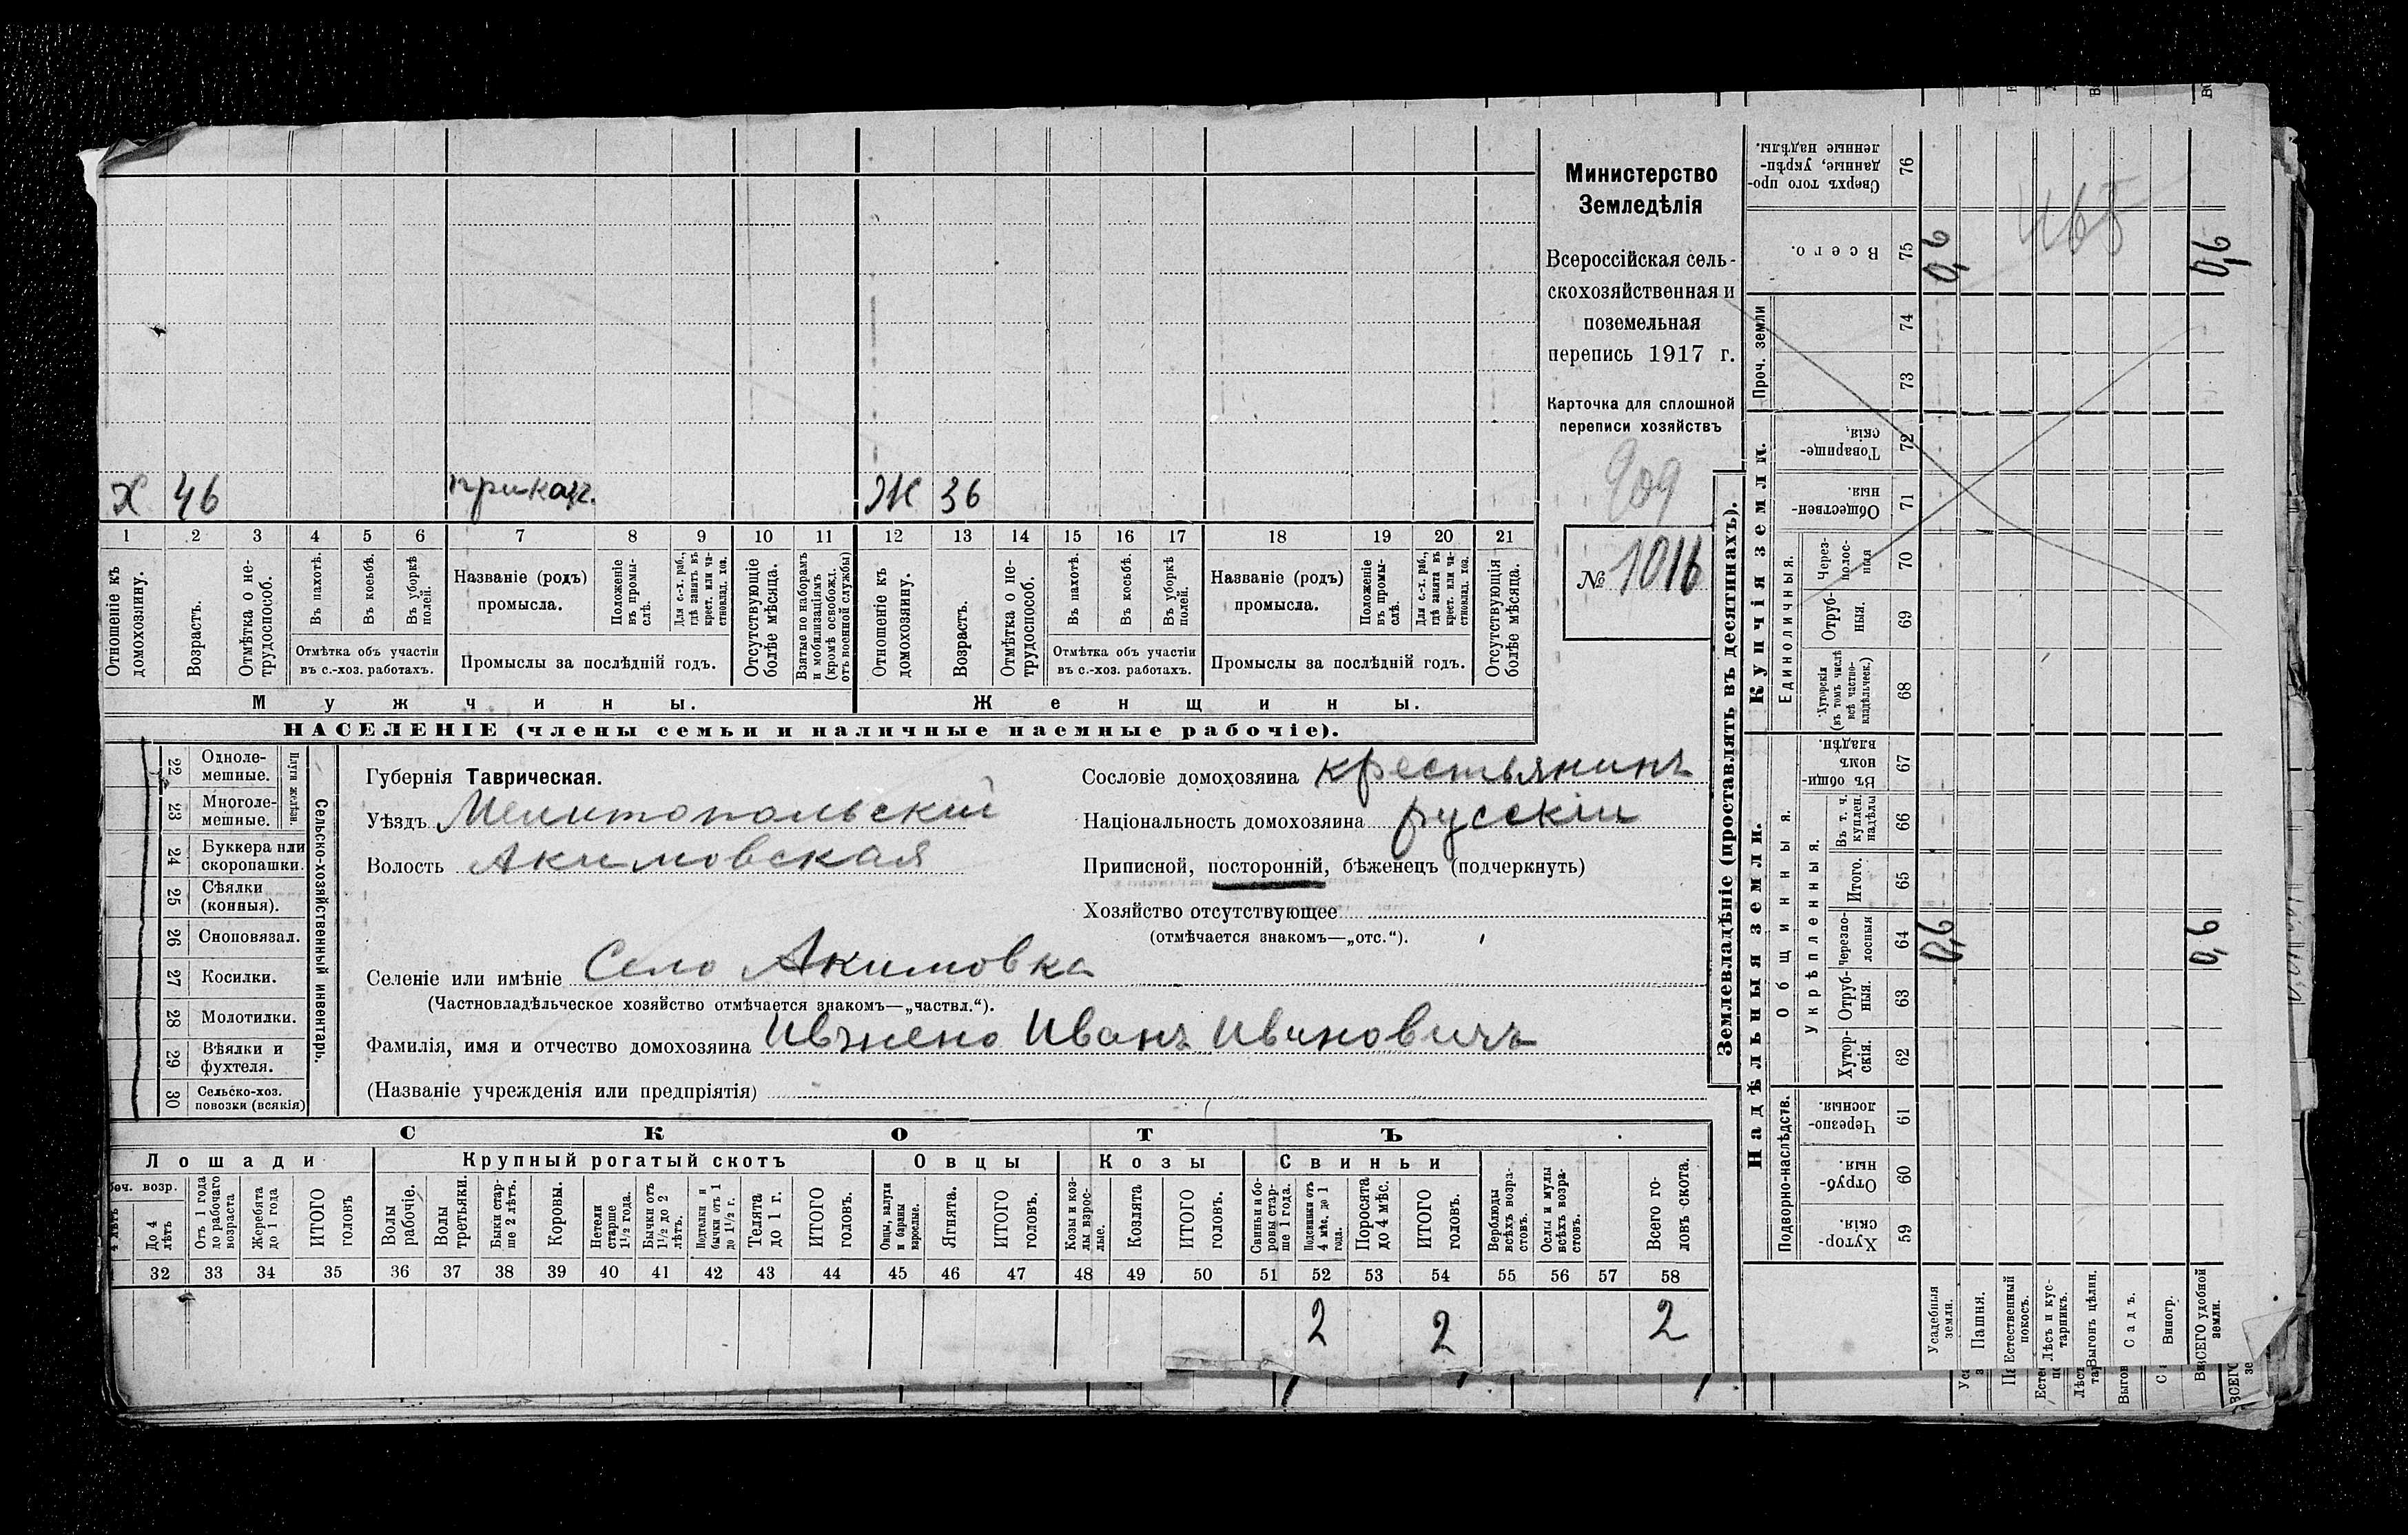 Министерство
Земледѣлія
Всероссійская сель-
скохозяйственная и
поземельная
перепись 1917 г.
Карточка для сплошной
переписи хозяйствъ
909
№ 1016
Х 46 приказ. Ж 36
1 2 3 4 5 6 7 8 9 10 11 12 13 14 15 16 17 18 19 20 21
Отношеніе къ домохозяину.
Возрастъ.
Отмѣтка о не-трудоспособ.
Въ пахотѣ.
Въ косьбѣ.
Въ уборкѣ полей.
Отмѣтка объ участіи
въ с.-хоз. работахъ.
Названіе (родъ)
промысла.
Положеніе въ промы-слѣ.
Для с.-х. раб., гдѣ занятъ въ крест. или ча-стновлад. хоз.
Промыслы за послѣдній годъ.
Отсутствующіе болѣе мѣсяца.
Взятые по наборамъ и мобилизаціямъ (кромѣ освобожд. отъ военной службы)
Отношеніе къ домохозяину.
Возрастъ.
Отмѣтка о не-трудоспособ.
Въ пахотѣ.
Въ косьбѣ.
Въ уборкѣ полей.
Отмѣтка объ участіи
въ с.-хоз. работахъ.
Названіе (родъ)
промысла.
Положеніе въ промы-слѣ.
Для с.-х. раб., гдѣ занята въ крест. или ча-стновлад. хоз.
Промыслы за послѣдній годъ.
Отсутствующія болѣе мѣсяца.
Мужчины.
Женщины.
НАСЕЛЕНІЕ (члены семьи и наличные наемные рабочіе).
Сельско-хозяйственный инвентарь.
Плуги желѣзн.
22 Одноле-мешные.
23 Многоле-мешные.
24 Буккера или скоропашки.
25 Сѣялки (конныя).
26 Сноповязал.
27 Косилки.
28 Молотилки.
29 Вѣялки и фухтеля.
30 Сельско-хоз. повозки (всякія)
Губернія Таврическая.
Уѣздъ Мелитопольскій
Волость Акимовская
Селеніе или имѣніе Село Акимовка
(Частновладѣльческое хозяйство отмѣчается знакомъ—„частвл.“).
Фамилія, имя и отчество домохозяина Иванъ Ивановичъ
(Названіе учрежденія или предпріятія)
Сословіе домохозяина крестьянинъ
Національность домохозяина русскій
Приписной, посторонній, бѣженецъ (подчеркнуть)
Хозяйство отсутствующее
(отмѣчается знакомъ—„отс.“).
СКОТЪ
Лошади
Крупный рогатый скотъ
Овцы
Козы
Свиньи
До 4 лѣтъ
Отъ 1 года до рабочаго возраста
Жеребята до 1 года
ИТОГО головъ
Волы рабочіе.
Волы третьяки.
Быки стар-ше 2 лѣтъ.
Коровы.
Нетели старше 1½ года.
Бычки отъ 1½ до 2 лѣтъ.
Подтелки и бычки отъ 1 до 1½ г.
Телята до 1 г.
ИТОГО головъ.
Овцы, валухи и бараны взрослые.
Ягнята.
ИТОГО головъ.
Козы и коз-лы взрос-лые.
Козлята
ИТОГО головъ.
Свиньи и бо-ровы стар-ше 1 года.
Подсвинки отъ 4 мѣс. до 1 года.
Поросята до 4 мѣс.
ИТОГО головъ.
Верблюды всѣхъ возра-стовъ.
Ослы и мулы всѣхъ возра-стовъ.
Всего го-ловъ скота.
32 33 34 35 36 37 38 39 40 41 42 43 44 45 46 47 48 49 50 51 52 53 54 55 56 57 58
2 2 2
Землевладѣніе (проставлять въ десятинахъ).
Надѣльныя земли.
Купчія земли.
Проч. земли
Подворно-наслѣдств.
Общинныя.
Укрѣпленныя.
Единоличныя.
59 Хутор-скія.
60 Отруб-ныя.
61 Черезпо-лосныя.
62 Хутор-скія.
63 Отруб-ныя.
64 Черезпо-лосныя
65 Итого.
66 Въ т. ч. куплен. надѣлы
67 Въ общин-номъ владѣн.
68 Хуторскія (въ томъ числѣ всѣ частно-владѣльческ.)
69 Отруб-ныя.
70 Через-полос-ныя
71 Обществен-ныя.
72 Товарище-скія,
73
74
75 Всего.
76 Сверхъ того про-данные, укрѣп-ленные надѣлы.
Усадебныя земли.
Пашня.
Естественный покосъ.
Лѣсъ и кус-тарникъ.
Выгонъ цѣлин.
Садъ.
Виногр.
ВСЕГО удобной земли.
465